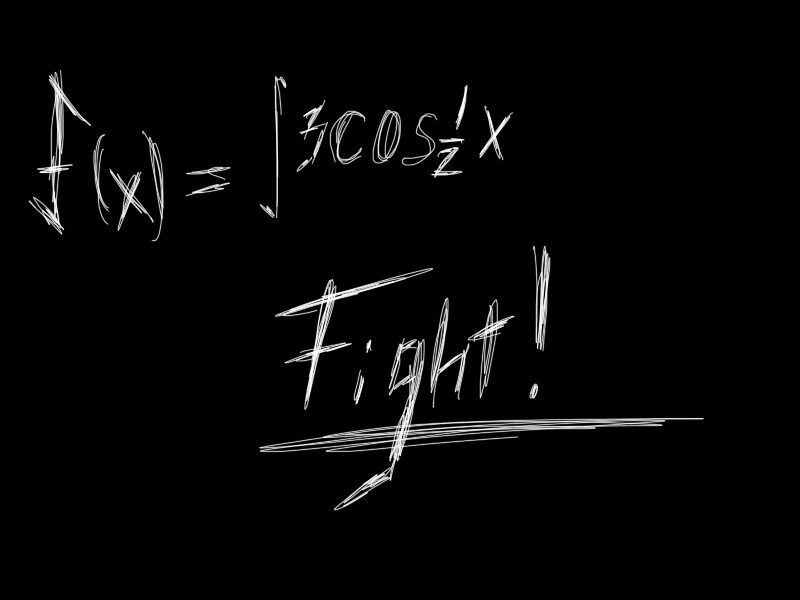 f(x) = ∫3cos½x
Fight!